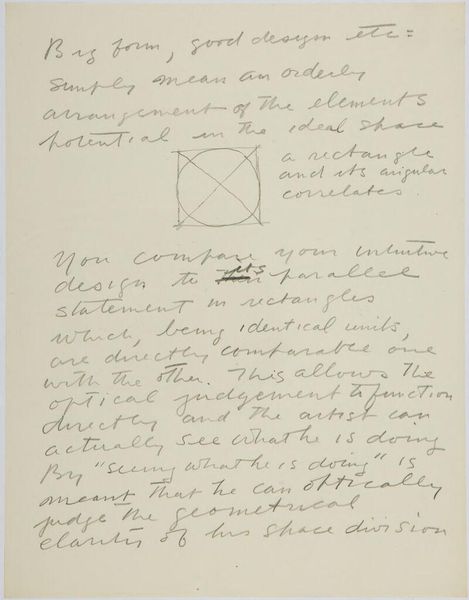 Big form, good design etc:
simply mean an orderly
arrangement of the elements
potential in the ideal space
a rectangle
and its angular
correlates.
You compare your intuitive
design to its parallel
statement in rectangles
which, being identical units,
are directly comparable one
with the other. This allows the
optical judgement to function
directly and the artist can
actually see what he is doing
By "seeing what he is doing" is
meant that he can optically
judge the geometrical
clarity of his space division